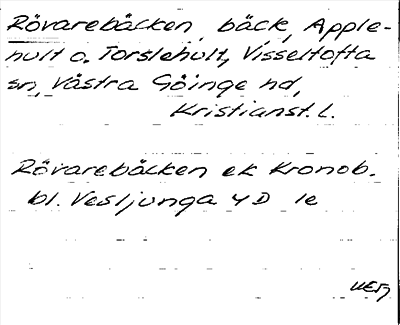 Rövarebäcken, bäck, Apple-
hult o. Torslehult, Visseltofta
sn, Västra Göinge hd,
Kristianst. l.
Rövarebäcken ek Kronob.
bl. Vesljunga 4D 1e